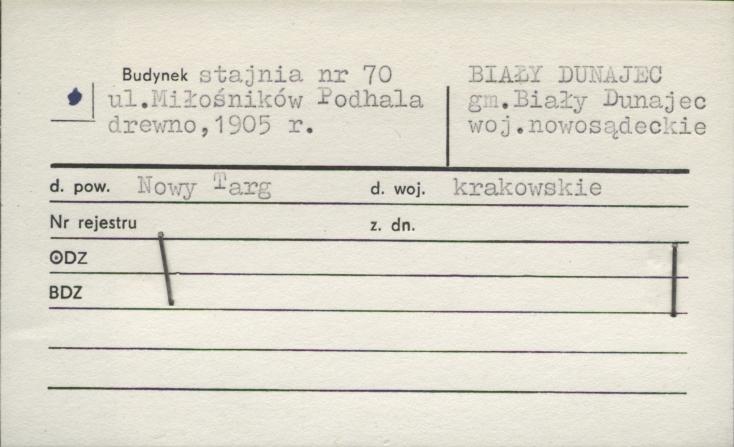 Budynek stajnia nr 70
ul.Miłośników Podhala
drewno,1905 r.
BIAŁY DUNAJEC
gm.Biały Dunajec
woj.nowosądeckie
d. pow. Nowy Targ d. woj. krakowskie
Nr rejestru z. dn.
ODZ
BDZ